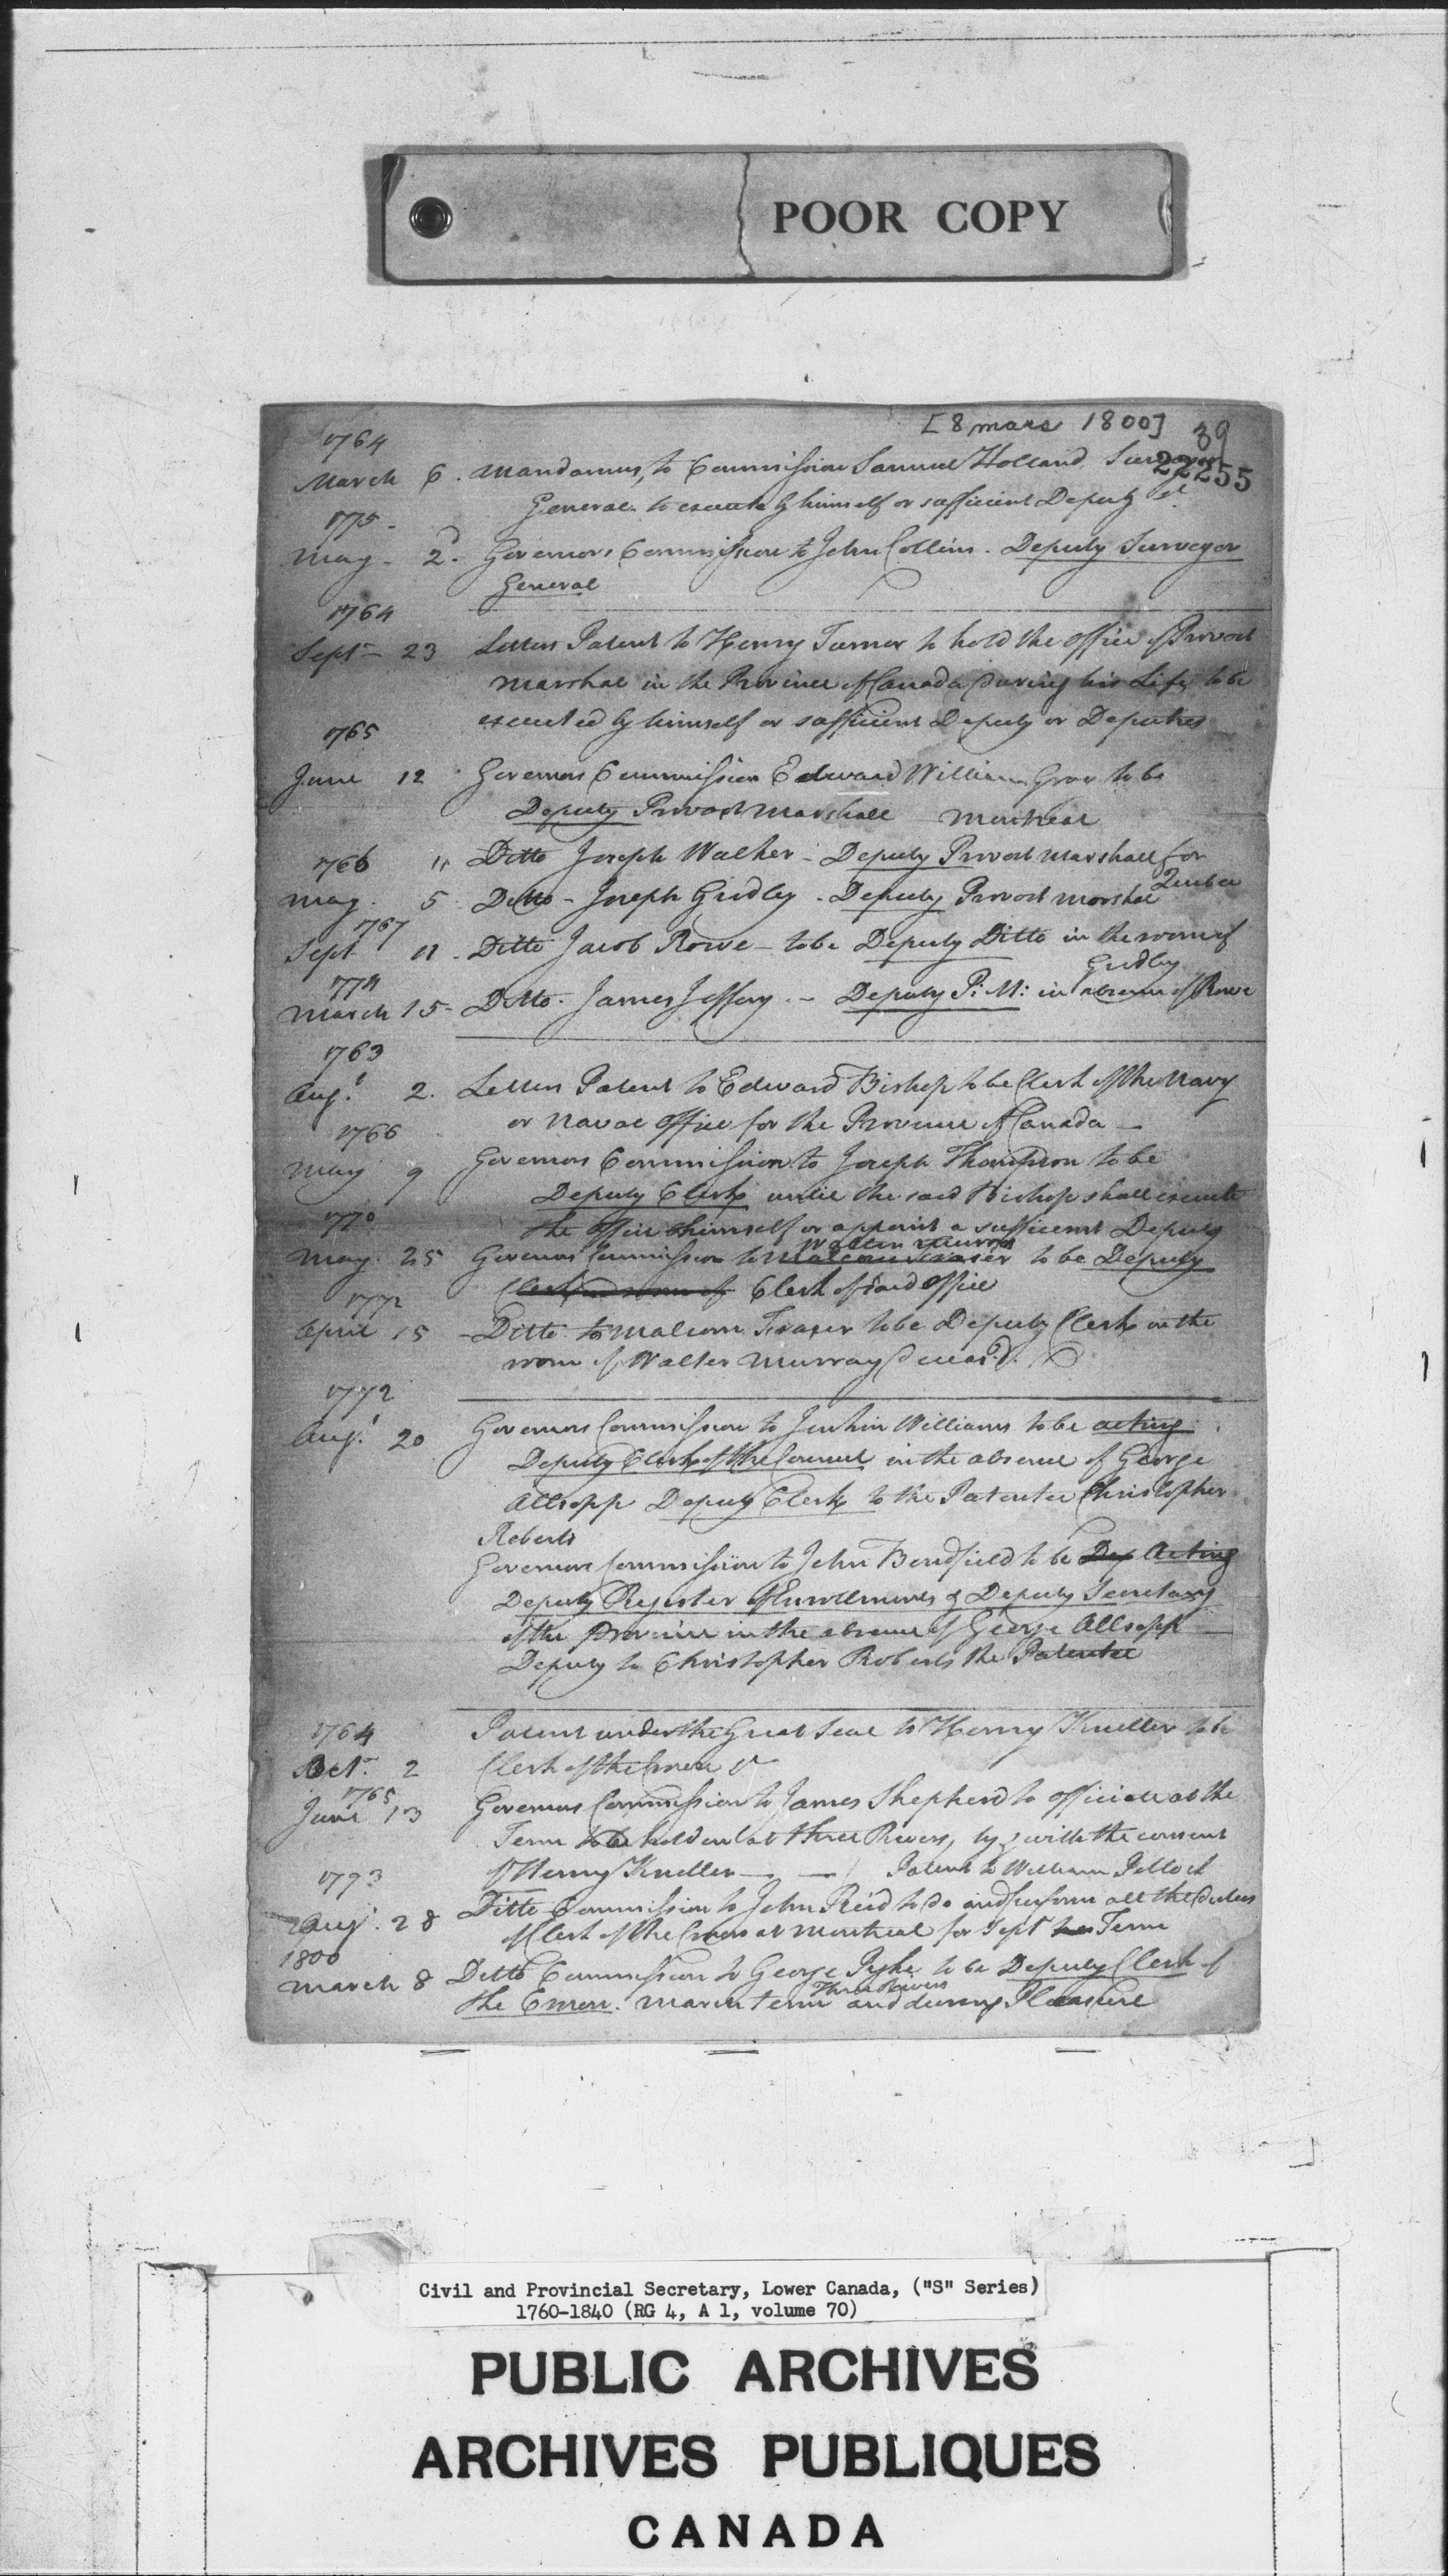 POOR COPY
[8 mars 1800] 39
22255
1764
March 6. Mandamus, to Commission Samuel Holland
General to execute by himself or sufficient Deputy &c
1775
May 2d. Governors Commission to John Collins. Deputy Surveyor
General
1764
Sept 23 Letters Patent to Henry Turner to hold the office of Provost
Marshal in the Province of Canada during his Life to be
executed by himself or sufficient Deputy or Deputies
1765
June 12 Governors Commission Edward William Gray to be
Deputy Provost Marshall Montreal
1766 " Ditto Joseph Walker - Deputy Provost Marshall for
Quebec
May 5 Ditto - Joseph Gridley - Deputy Provost Marshal
1767
Sept 11. Ditto Jacob Rowe - to be Deputy Ditto in the room of
Gridley
1774
March 15 - Ditto. James Jeffery - Deputy P: M: in absence of Rowe
1763
Augt. 2. Letters Patent to Edward Bishop to be Clerk of the Navy
or Naval Office for the Province of Canada -
1766
May 9 Governors Commission to Joseph Thompson to be
Deputy Clerk until the said Bishop shall execute
the office himself or appoint a sufficient Deputy
1770
Walter Murray
May 25 Governors Commission to Malcom Fraser to be Deputy
Clerk of said Office
1772
April 15 - Ditto to Malcom Fraser to be Deputy Clerk in the
room of Walter Murray deceas'd.
1772
Augt. 20 Governors Commission to Jenkin Williams to be acting
Deputy Clerk of the Council in the absence of George
Allsopp Deputy Clerk to the Patentee Christopher
Roberts
Governors Commission to John Bondfield to be Dep Acting
Deputy Register of Enrollments & Deputy Secretary
of the Province in the absence of George Allsopp
Deputy to Christopher Roberts the Patentee
1764
Patent under the Great Seal to Henry Kneller to be
Oct. 2 Clerk of the Crown &c
1765
June 13 Governors Commission to James Shepherd to officiate at the
Term to be holden at three Rivers, by & with the consent
of Henry Kneller - - Patent to William Pollock
1793
Aug. 28 Ditto Commission to John Reid to do and perform all the duties
of Clerk of the Crown at Montreal for Sept Term
1800
March 8 Ditto Commission to George Pyke to be Deputy Clerk of
Three Rivers
the Crown. March term and during Pleasure
Civil and Provincial Secretary, Lower Canada, ("S" Series)
1760-1840 (RG 4, A 1, volume 70)
PUBLIC ARCHIVES
ARCHIVES PUBLIQUES
CANADA